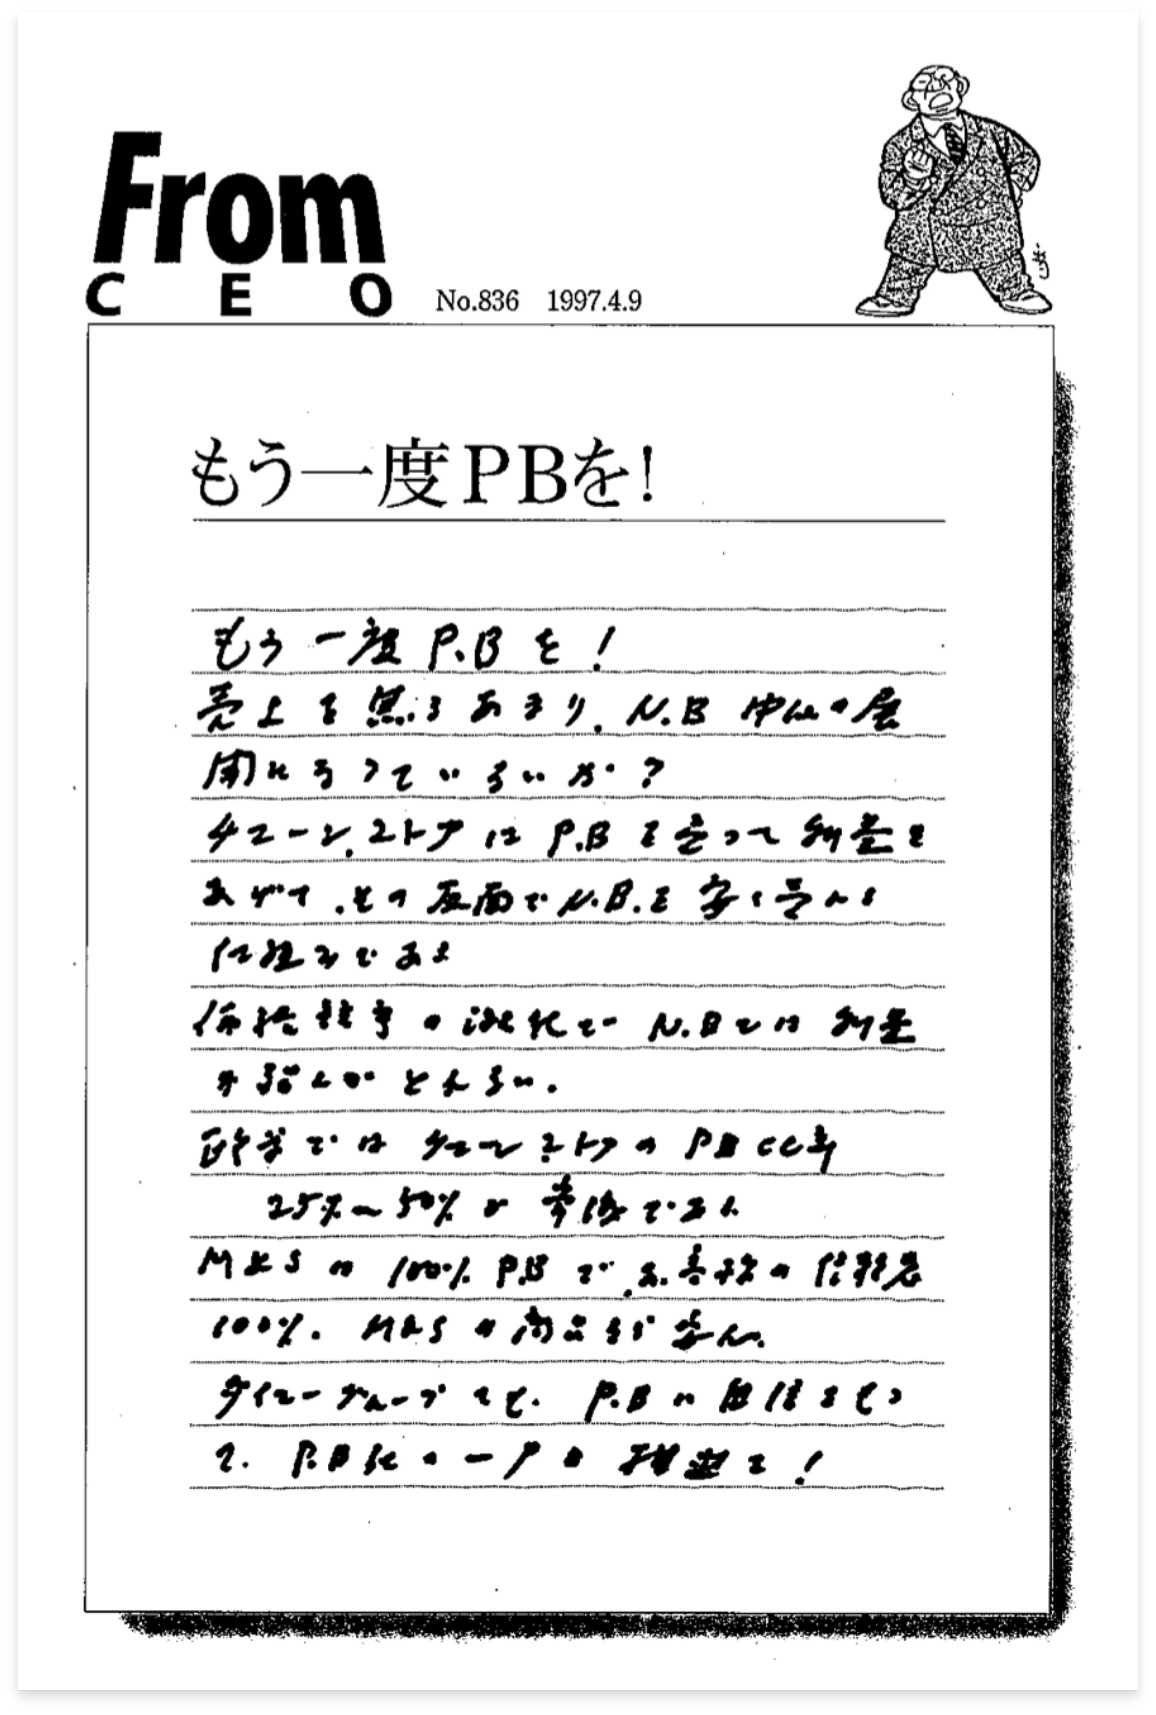 From
CEO No.836 1997.4.9
もう一度PBを!
もう一度P.Bを!
売上を焦るあまり、N.B中心の展
開になっていないか?
チェーンストアはP.Bを売って利益を
あげて、その反面でN.B.を安く売る
仕組みである
価格競争の激化でN.Bでは利益
が稼ぐがとれない.
欧米ではチェーンストアのPB比率
25%〜50%が常識である
M&Sは100%P.Bで、お客様の信頼度
100%. M&Sの商品が
ダイエーグループでも、P.Bに自信をもっ
て. P.B化の一層の推進を!